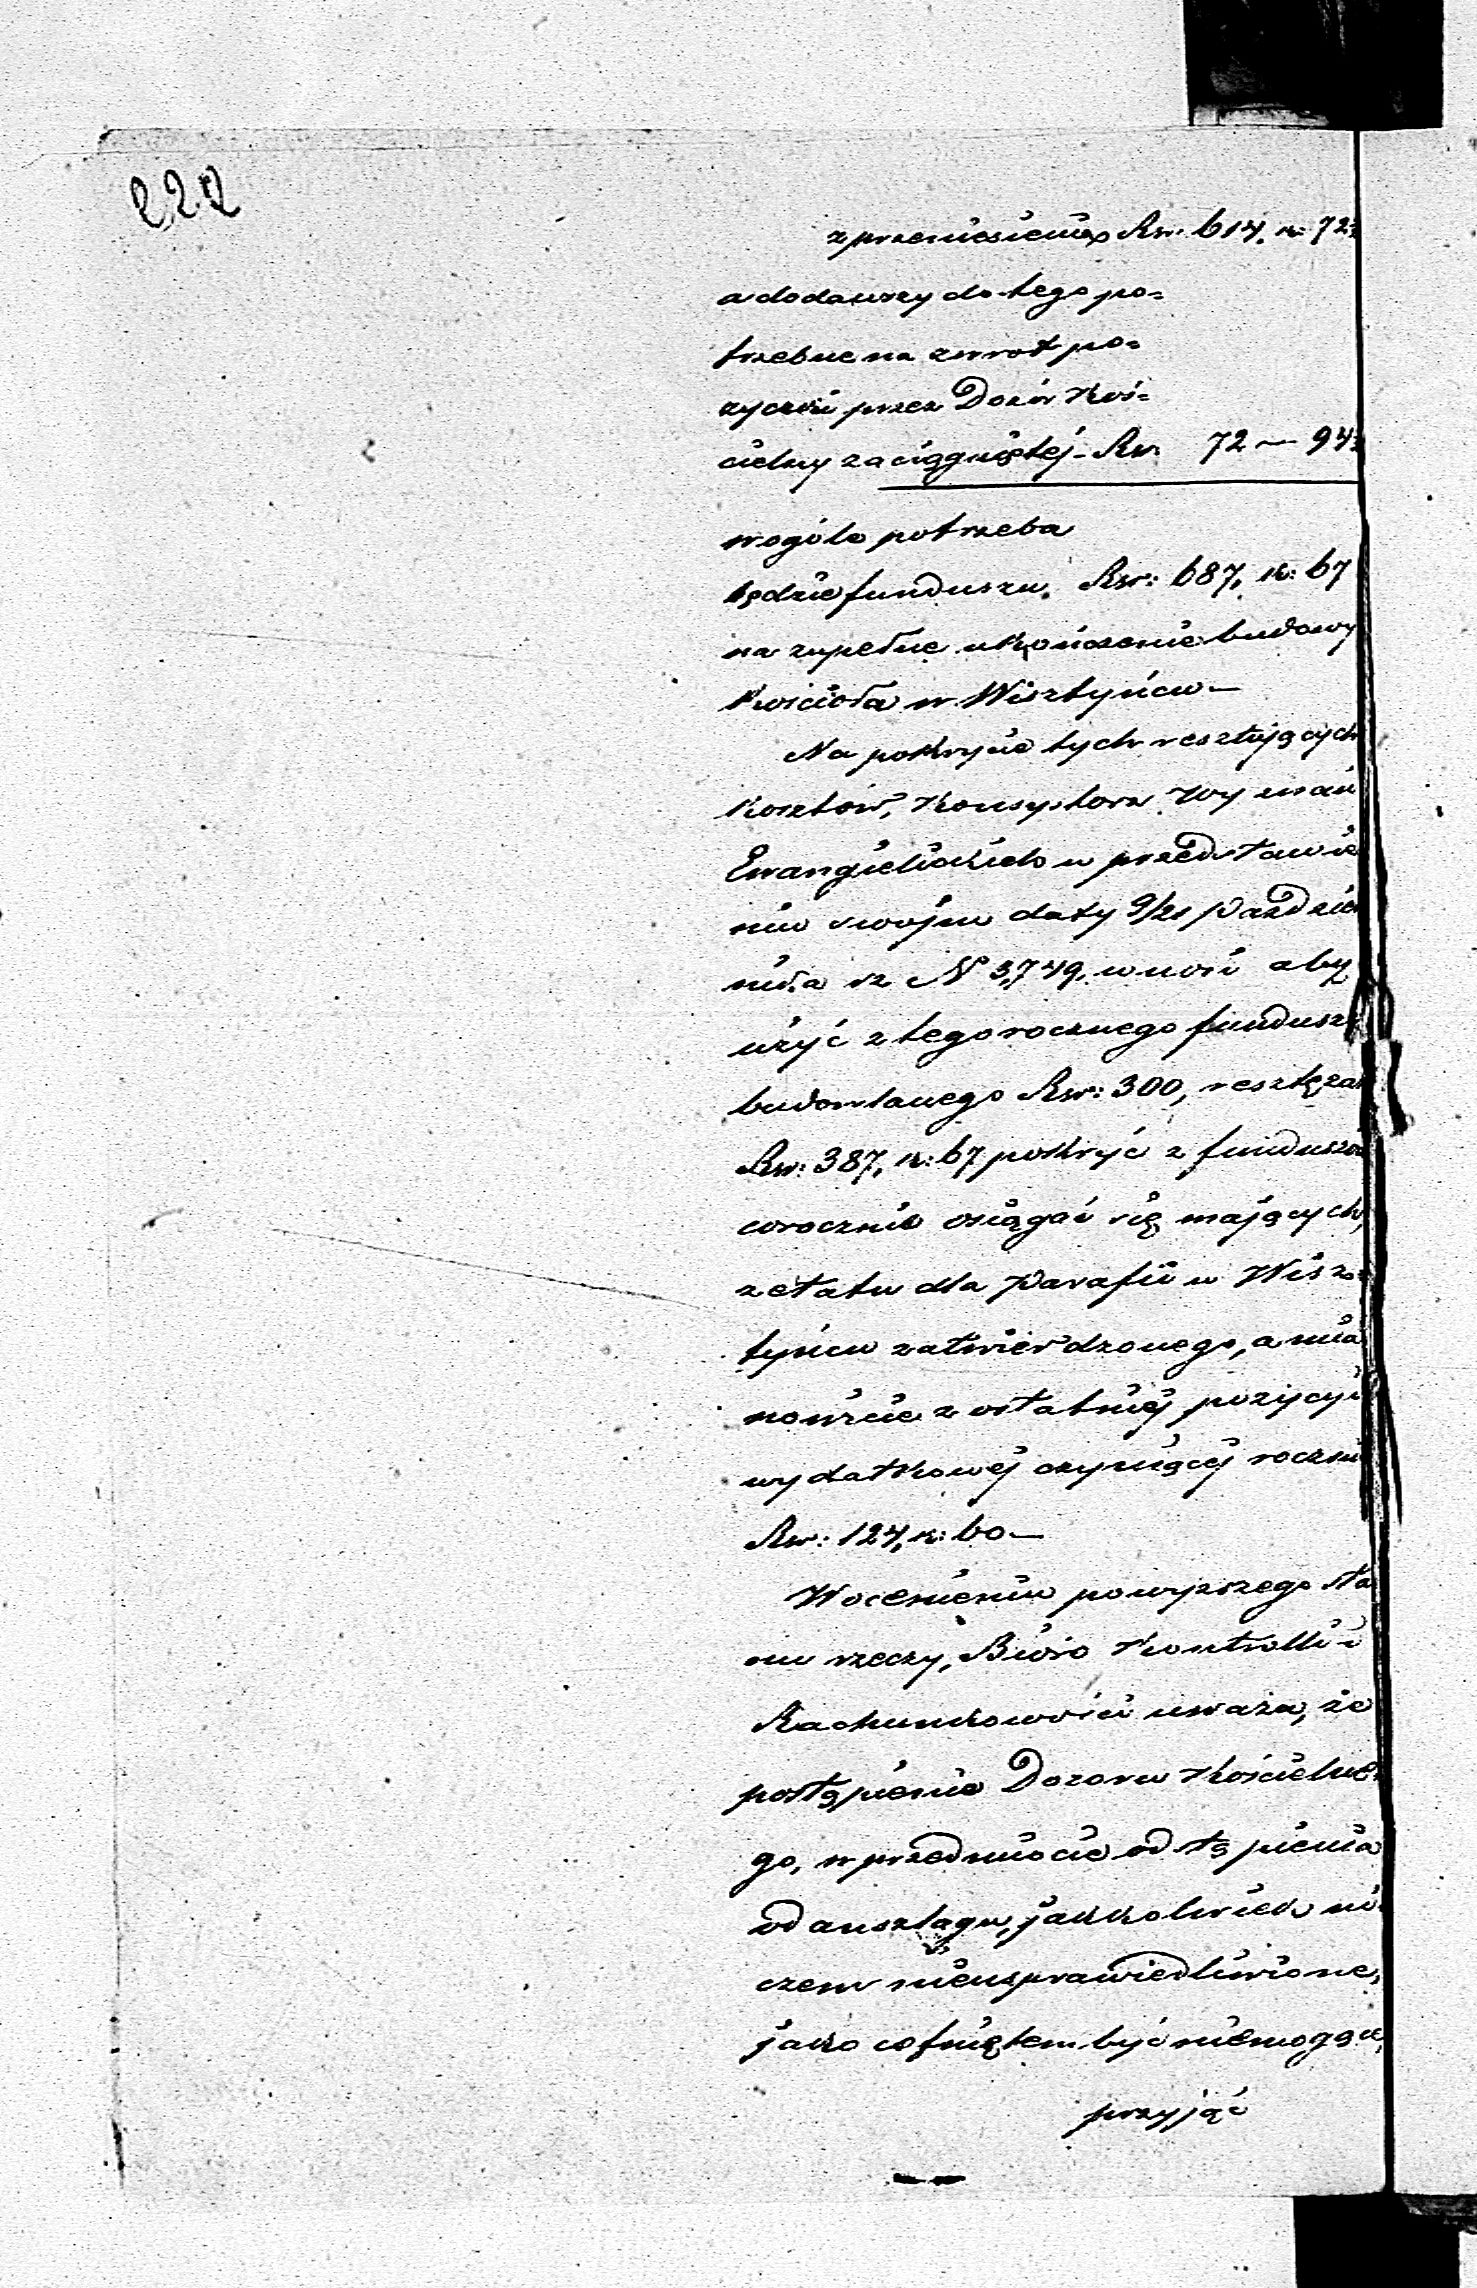 222
z przeniesienia Rsr. 614. k: 72½
a dodawszy do tego po=
trzebne na zwrot po=
życzki przez Dozór Koś=
cielny zaciągniętéj - Rsr. 72 — 94½
wogóle potrzeba
będzie funduszu. Rsr: 687, k: 67
na zupełne ukończenie budowy
Kościoła w Wisztyńcu —
Na pokrycie tych resztujących
kosztów, Konsystorz Wyznań
Ewangielickich w przedstawie
niu swojém daty 9/21 Paździer
nika rz N 3,749, wnosi aby
użyć z tegorocznego funduszu
budowlanego Rsr: 300, resztę zaś
Rsr: 387, k: 67 pokryć z funduszów
corocznie osiągać się mających,
z etatu dla Parafii w Wisz=
tyńcu zatwierdzonego, a mia
nowicie z ostatniéj pozycyi
wydatkowéj czyniącéj rocznie
Rsr: 124, k: 60 —
W ocenieniu powyższego sta
nu rzeczy, Biuro Kontrolli i
Rachunkowości uważa, że
postąpienie Dozoru Kościelne=
go, w przedmiocie odstąpienia
od anszlagu, jakkolwiek ni
czem nieusprawiedliwione,
jako cofniętem być niemogące,
przyjąć